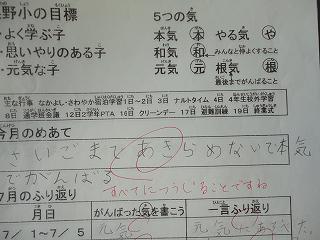 野小の目標
5つの気
・よく学ぶ子
本気 本 やる気 や
・思いやりのある子
和気 和 みんなと仲よくすること
・元気な子
元気 元 根気 根
最後までがんばること
主な行事 なかよし・さわやか宿泊学習1日~2日 3日 ナルトタイム 4日 4年生校外学習
8日 通学班会議 12日2学年PTA 16日 クリーンデー 17日 避難訓練 19日 終業式
今月のめあて
さいごまであきらめないで本気
でがんばる
すべてにつうじることですね
7月のふり返り
月日
がんばった気を書こう
一言ふり返り
7/1~7/5
元気
元気